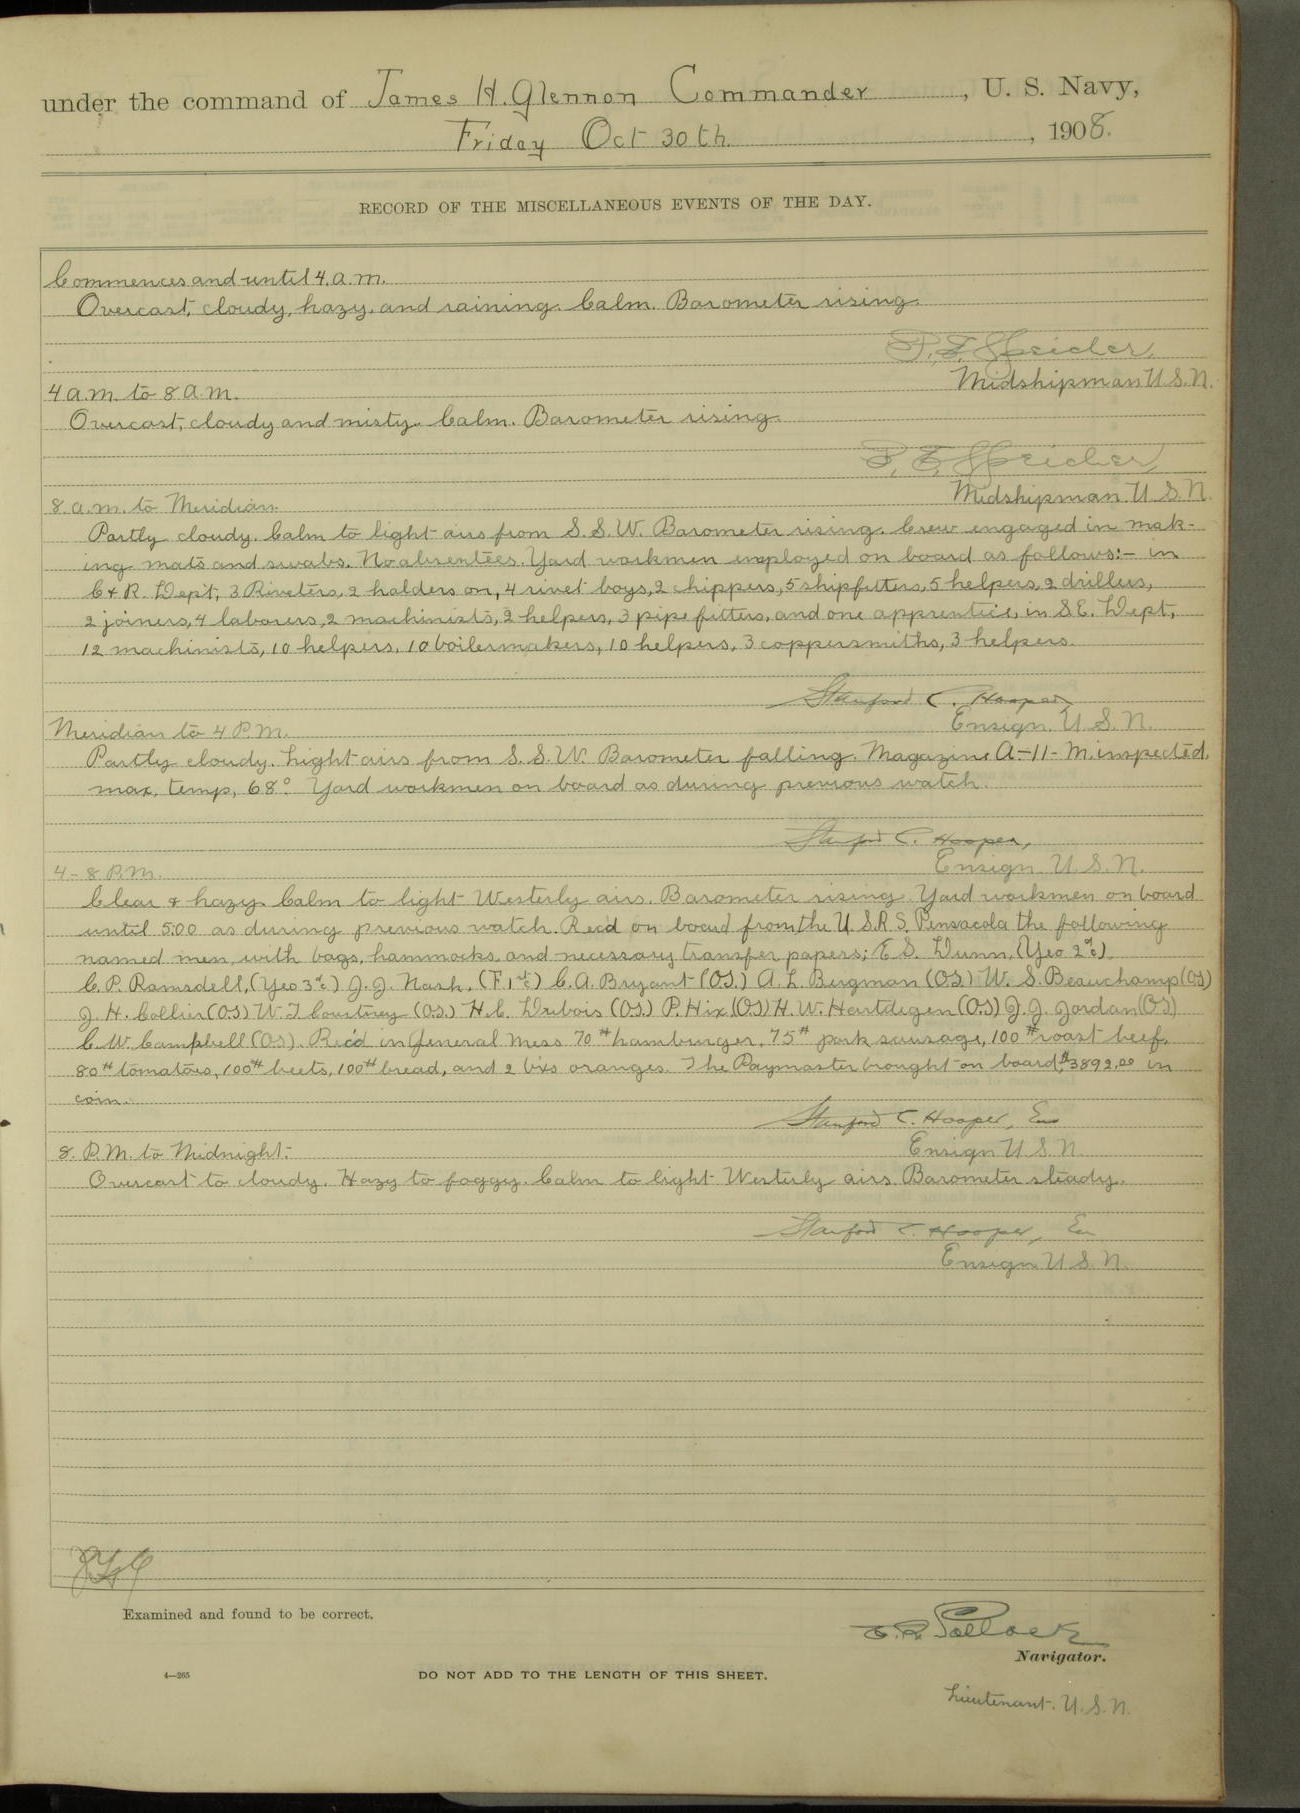 under the command of James H. Glennon Commander, U. S. Navy,
Friday Oct 30th, 1908.
RECORD OF THE MISCELLANEOUS EVENTS OF THE DAY.
Commences and until 4 a.m.
Overcast, cloudy, hazy, and raining. Calm. Barometer rising.
Midshipman U.S.N.
4 a.m. to 8 a.m.
Overcast, cloudy and misty. Calm. Barometer rising.
Midshipman U.S.N.
8 a.m. to Meridian.
Partly cloudy. Calm to light airs from S.S.W. Barometer rising. Crew engaged in mak-
ing mats and swabs. No absentees. Yard workmen employed on board as follows:- in
C & R. Dept, 3 Riveters, 2 holders on, 4 rivet boys, 2 chippers, 5 shipfitters, 5 helpers, 2 drillers,
2 joiners, 4 laborers, 2 machinists, 2 helpers, 3 pipe fitters, and one apprentice, in S.E. Dept,
12 machinists, 10 helpers, 10 boilermakers, 10 helpers, 3 coppersmiths, 3 helpers.
Stanford C. Hooper,
Ensign. U.S.N.
Meridian to 4 P.M.
Partly cloudy. Light airs from S.S.W. Barometer falling. Magazine A-11-M. inspected,
max. temp, 68° Yard workmen on board as during previous watch.
Stanford C. Hooper,
Ensign U.S.N.
4-8 P.M.
Clear & hazy. Calm to light Westerly airs. Barometer rising. Yard workmen on board
until 5:00 as during previous watch. Rec'd on board from the U.S.R.S. Pensacola the following
named men, with bags, hammocks, and necessary transfer papers; E.S. Dunn, (Yeo 2"c).
C.P. Ramsdell, (Yeo 3"c) J.J. Nash, (F 1"c) C.A. Bryant (OS.) A.L. Bergman (OS.) W.S. Beauchamp (OS)
J.H. Collier (OS) W.T. Courtney (OS.) H.C. Dubois (OS.) P. Hix (OS) H.W. Hartdegen (OS) J.J. Jordan (OS)
C.W. Campbell (OS). Rec'd in General Mess 70# hamburger, 75# pork sausage, 100# roast beef,
80# tomatoes, 100# beets, 100# bread, and 2 bxs oranges. The Paymaster brought on board $3892.00 in
coin.
Stanford C. Hooper, Ens
Ensign U.S.N.
8. P.M. to Midnight:
Overcast to cloudy. Hazy to foggy. Calm to light Westerly airs. Barometer steady.
Stanford C. Hooper, En
Ensign U.S.N.
Examined and found to be correct.
Pollock
Navigator.
4—265
DO NOT ADD TO THE LENGTH OF THIS SHEET.
Lieutenant. U.S.N.